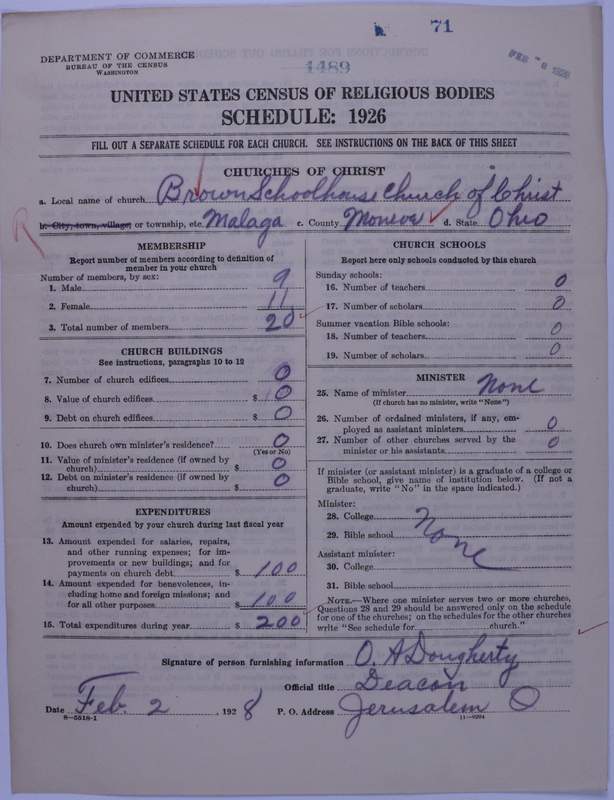 71
DEPARTMENT OF COMMERCE
BUREAU OF THE CENSUS
WASHINGTON
1489
UNITED STATES CENSUS OF RELIGIOUS BODIES
SCHEDULE: 1926
FILL OUT A SEPARATE SCHEDULE FOR EACH CHURCH. SEE INSTRUCTIONS ON THE BACK OF THIS SHEET
CHURCHES OF CHRIST
a. Local name of church Brown Schoolhouse Church of Christ
b. City, town, village, or township, etc. Malaga c. County Monroe d. State Ohio
R
MEMBERSHIP
Report number of members according to definition of
member in your church
Number of members, by sex:
1. Male 9
2. Female 11
3. Total number of members 20
CHURCH BUILDINGS
See instructions, paragraphs 10 to 12
7. Number of church edifices 0
8. Value of church edifices $ 0
9. Debt on church edifices $ 0
10. Does church own minister's residence? 0
(Yes or No)
11. Value of minister's residence (if owned by
church) $ 0
12. Debt on minister's residence (if owned by
church) $ 0
EXPENDITURES
Amount expended by your church during last fiscal year
13. Amount expended for salaries, repairs,
and other running expenses; for im-
provements or new buildings; and for
payments on church debt $ 100
14. Amount expended for benevolences, in-
cluding home and foreign missions; and
for all other purposes 100
15. Total expenditures during year $ 200
CHURCH SCHOOLS
Report here only schools conducted by this church
Sunday schools:
16. Number of teachers 0
17. Number of scholars 0
Summer vacation Bible schools:
18. Number of teachers 0
19. Number of scholars 0
MINISTER
25. Name of minister None
(If church has no minister, write "None")
26. Number of ordained ministers, if any, em-
ployed as assistant ministers 0
27. Number of other churches served by the
minister or his assistants 0
If minister (or assistant minister) is a graduate of a college or
Bible school, give name of institution below. (If not a
graduate, write "No" in the space indicated.)
Minister:
28. College None
29. Bible school
Assistant minister:
30. College
31. Bible school
NOTE.—Where one minister serves two or more churches,
Questions 28 and 29 should be answered only on the schedule
for one of the churches; on the schedules for the other churches
write "See schedule for church."
Signature of person furnishing information O. A Dougherty
Official title Deacon
Date Feb. 2, 1928 P. O. Address Jerusalem O
8—5518-1 11—9294